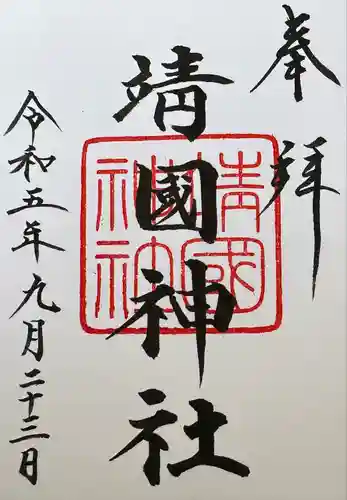 奉拝
靖國神社
靖國神社
令和五年九月二十三日